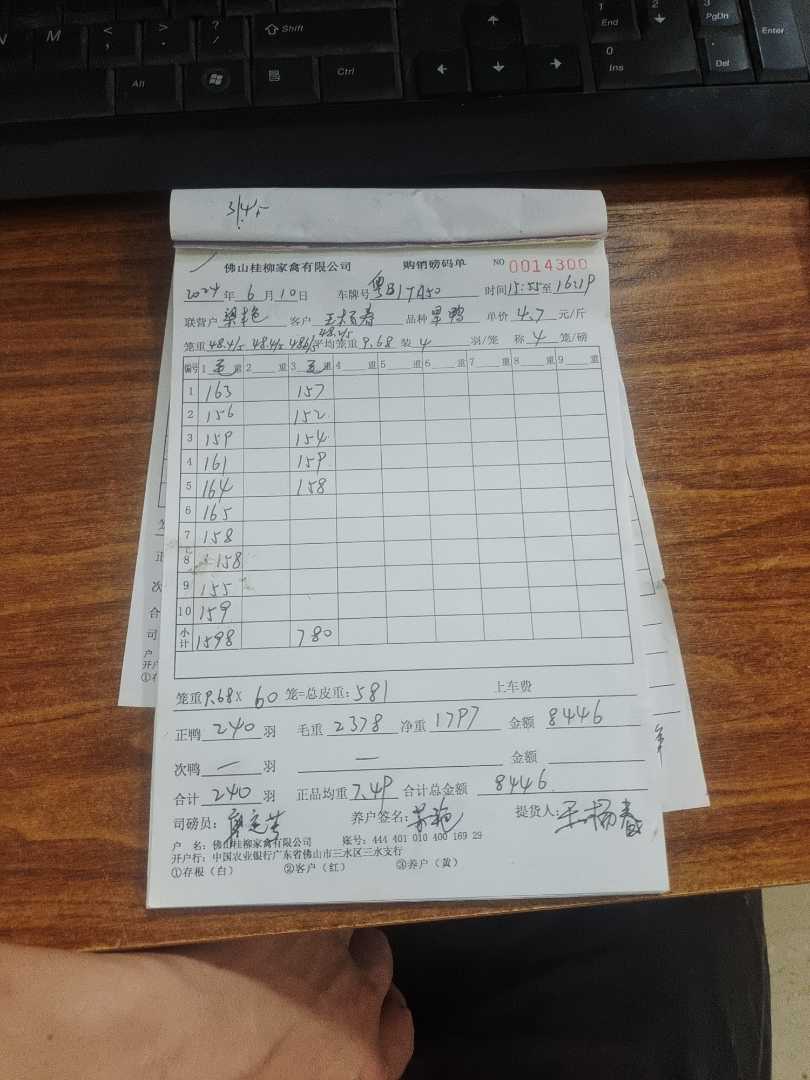 3/45
佛山桂柳家禽有限公司 购销磅码单 NO 0014300
2024年6月10日 车牌号 粤B17A50 时间15:55至16:19
联营户 梁艳 客户 王杨春 品种 旱鸭 单价 4.7 元/斤
48.4/5
笼重48.4/5 48.4/5 48.6/5平均笼重9.68 装 4 羽/笼 称 4 笼/磅
编号 1 毛 重 2 重 3 毛 重 4 重 5 重 6 重 7 重 8 重 9 重
1 163 157
2 156 152
3 159 154
4 161 159
5 164 158
6 165
7 158
8 158
9 155
10 159
小计 1598 780
笼重9.68× 60 笼=总皮重:581 上车费
正鸭 240 羽 毛重 2378 净重 1797 金额 8446
次鸭 一 羽 — 金额
合计 240 羽 正品均重7.49 合计总金额 8446
司磅员: 养户签名: 提货人:王杨春
户 名:佛山桂柳家禽有限公司 账号:444 401 010 400 169 29
开户行:中国农业银行广东省佛山市三水区三水支行
①存根(白) ②客户(红) ③养户(黄)